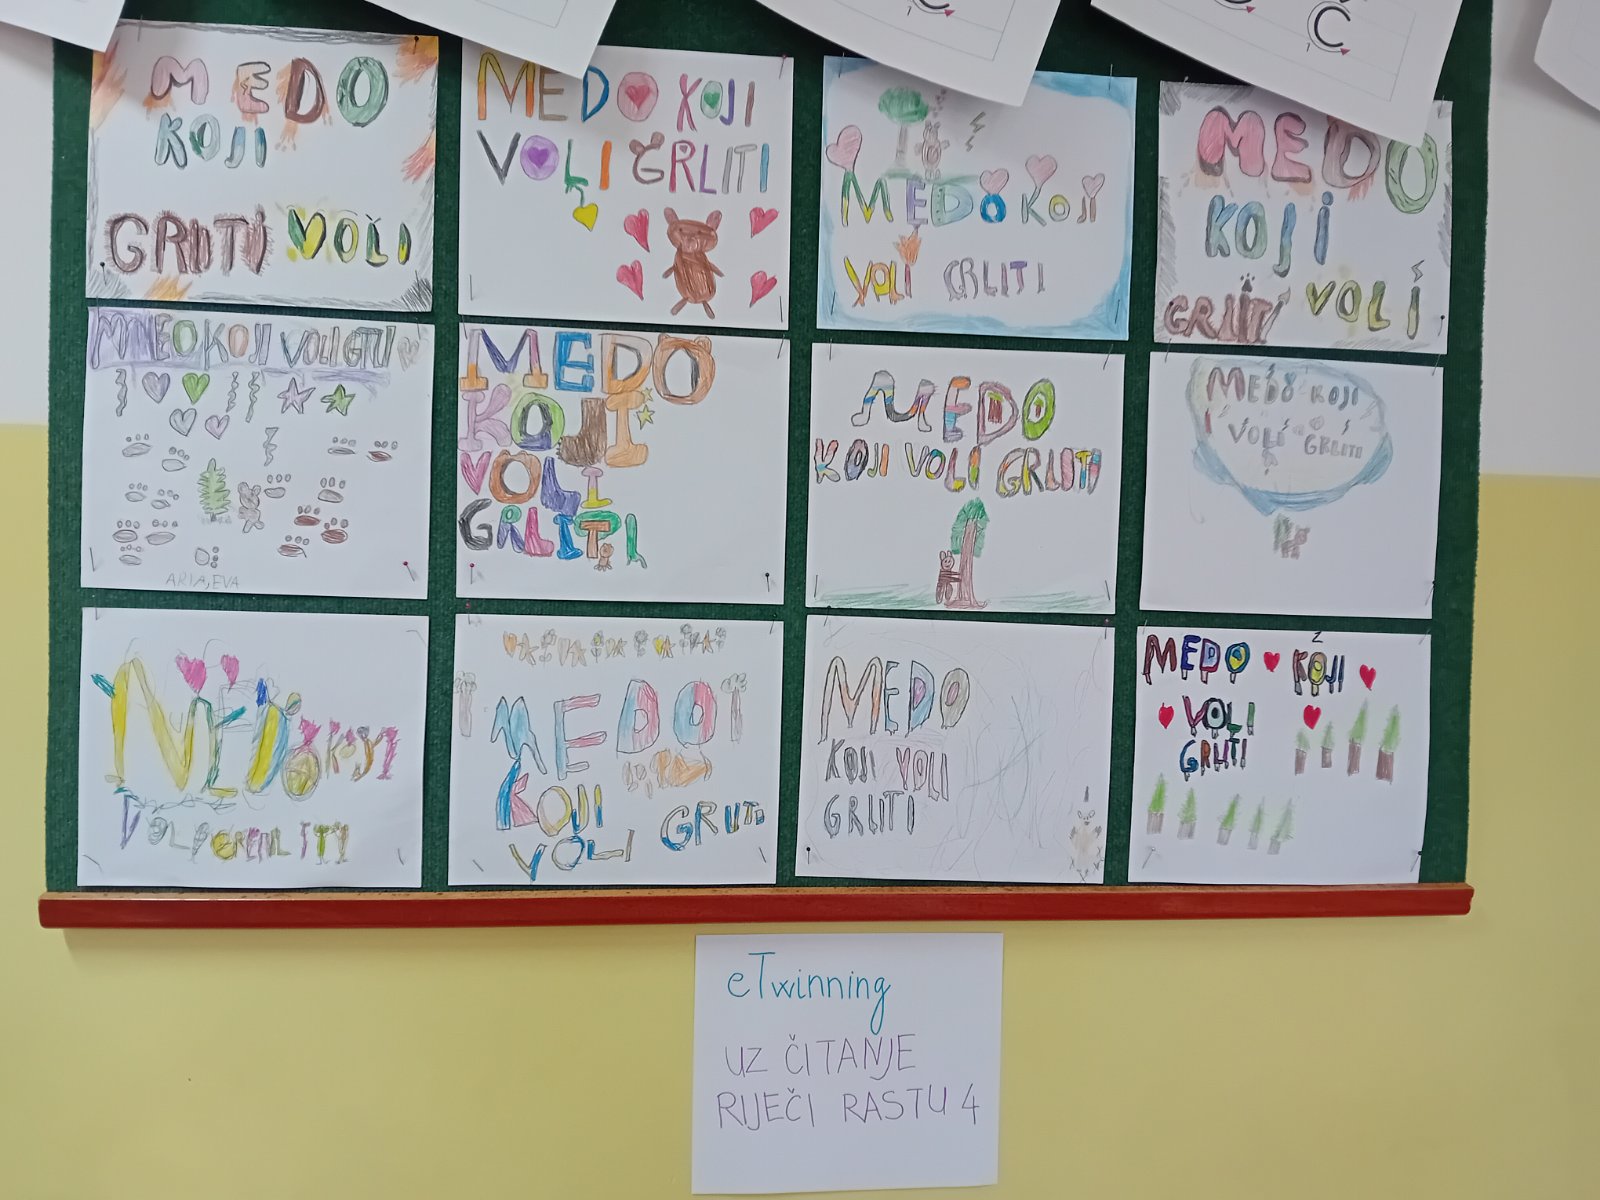 Č
MEDO
KOJI
GRLITI VOLI
MEDO KOJI
VOLI GRLITI
MEDO KOJI
VOLI GRLITI
MEDO
KOJI
GRLITI VOLI
KOJI VOLI
ARIA, EVA
MEDO
KOJI
VOLI
GRLITI
MEDO
KOJI VOLI GRLITI
MEDO KOJI
VOLI GRLITI
MEDO KOJI
MEDO
KOJI
VOLI GRLITI
MEDO
KOJI VOLI
GRLITI
MEDO KOJI
VOLI
GRLITI
eTwinning
UZ ČITANJE
RIJEČI RASTU 4